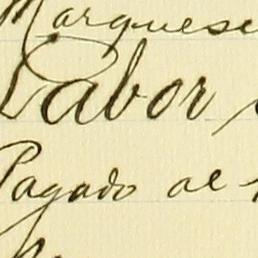 Marquese
Labor
Pagado al